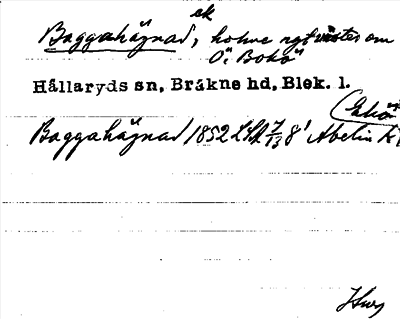 ek
Baggahägnad, kohne ngt väster om
Ö. Bokö
Hållaryds sn, Bräkne hd, Blek. l.
Baggahägnad 1852 LSA 7/13 8' Abelin K